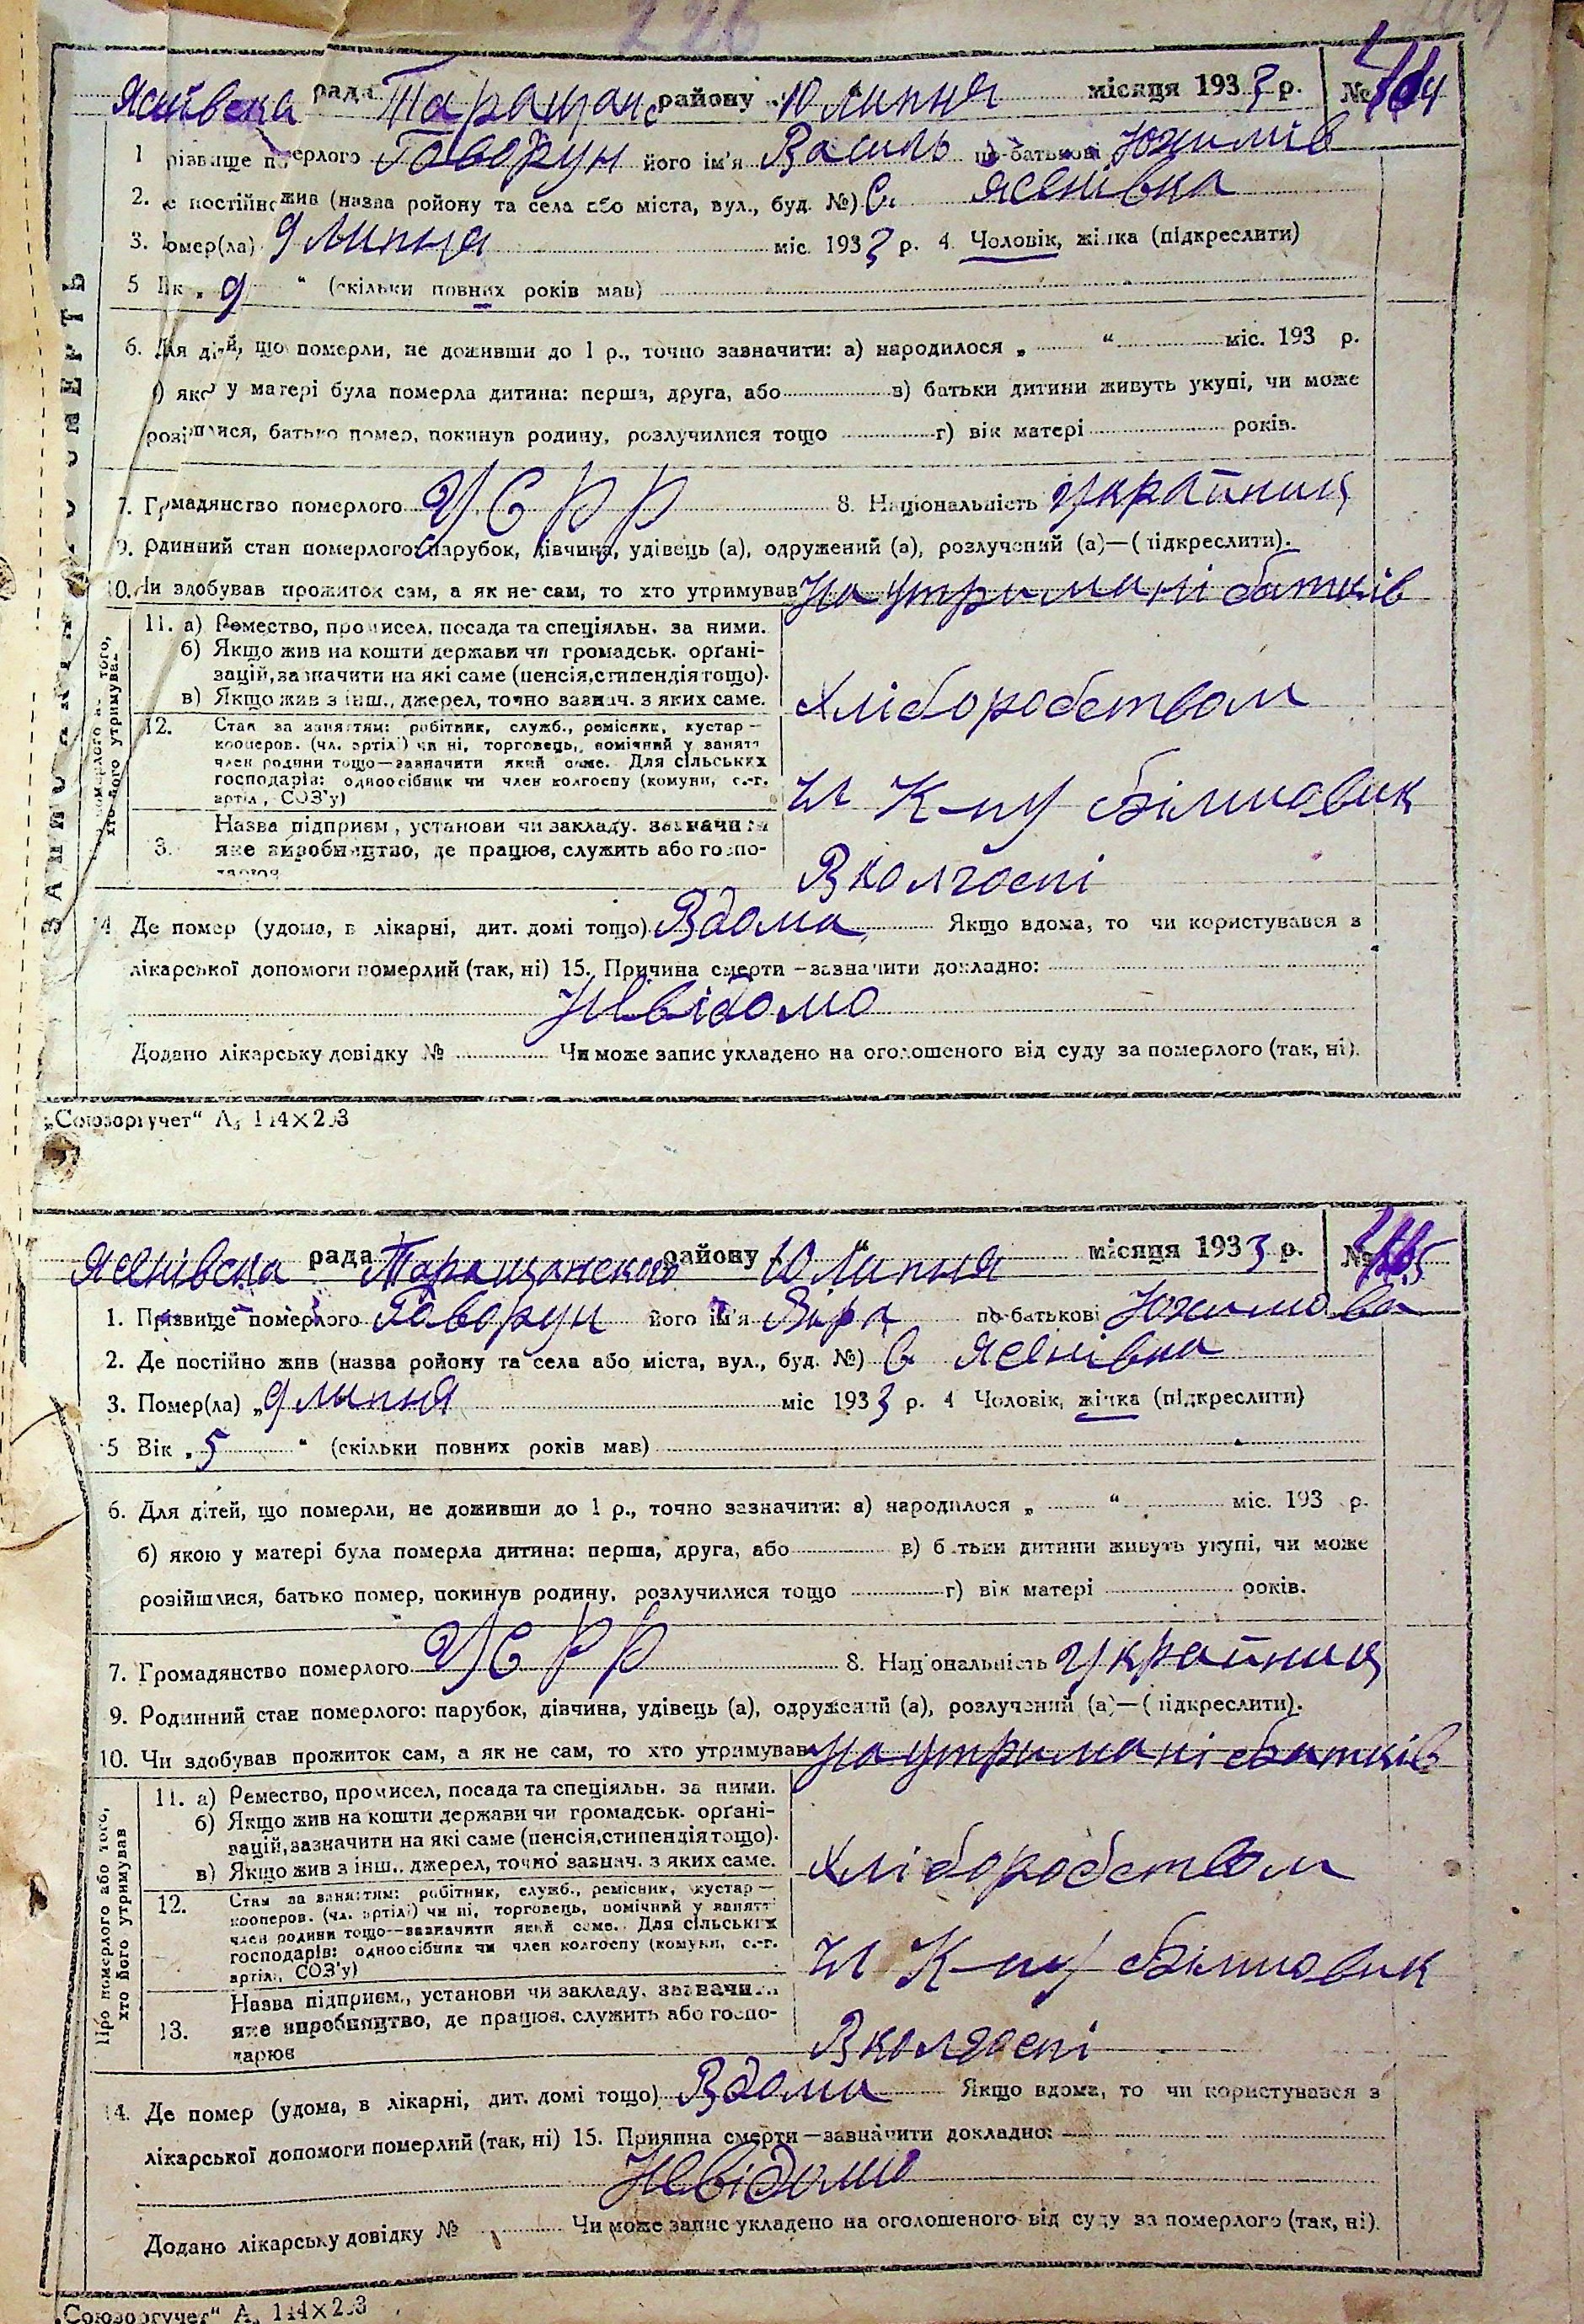 226
Ясенівська рада Таращанс району „10 липня місяця 1933 р. №
1 різвище померлого Говорун його ім'я Василь по-батькові Юхимів
2. е постійно жив (назва ройону та села або міста, вул., буд. №) С. Ясенівка
3. омер(ла) 9 липня міс. 1933 р. 4. Чоловік, жінка (підкреслити)
5 Вік „ 9 “ (скільки повних років мав)
6. Для дітей, що померли, не доживши до 1 р., точно зазначити: а) народилося „ “ міс. 193 р.
) якою у матері була померла дитина: перша, друга, або в) батьки дитини живуть укупі, чи може
розійшлися, батько помер, покинув родину, розлучилися тощо г) вік матері років.
7. Громадянство померлого УСРР 8. Національність українця
9. Родинний стан померлого: парубок, дівчина, удівець (а), одружений (а), розлучений (а)—(підкреслити).
10. Чи здобував прожиток сам, а як не сам, то хто утримував На утримані батьків
11. а) Ремество, промисел, посада та спеціяльн. за ними.
б) Якщо жив на кошти держави чи громадськ. орґані-
зацій, зазначити на які саме (пенсія, стипендія тощо).
в) Якщо жив з інш., джерел, точно зазнач. з яких саме.
Хліборобством
12. Стан за заняттям: робітник, служб., ремісник, кустар—
кооперов. (чл. артілі) чи ні, торговець, помічний у занятт
член родини тощо—зазначити який саме. Для сільських
господарів: одноосібник чи член колгоспу (комуни, с.-г.
артіл., СОЗ'у)
Чл К-пу Більшовик
Назва підприєм., установи чи закладу, зазначити
3. яке виробництво, де працює, служить або госпо-
дарює
В колгоспі
14 Де помер (удома, в лікарні, дит. домі тощо) Вдома Якщо вдома, то чи користувався з
лікарської допомоги померлий (так, ні) 15. Причина смерти—зазначити докладно:
Невідомо
Додано лікарську довідку № Чи може запис укладено на оголошеного від суду за померлого (так, ні).
ЗАПИС ПРО СМЕРТЬ
„Союзоргучет“ А₅ 144×203
Ясенівська рада Таращанського району „10 липня місяця 1933 р. №
1. Прізвище померлого Говорун його ім'я Віра по-батькові Юхимова
2. Де постійно жив (назва ройону та села або міста, вул., буд. №) С Ясенівка
3. Помер(ла) „9 липня міс 1933 р. 4 Чоловік, жінка (підкреслити)
5 Вік „ 5 “ (скільки повних років мав)
6. Для дітей, що померли, не доживши до 1 р., точно зазначити: а) народилося „ “ міс. 193 р.
б) якою у матері була померла дитина: перша, друга, або в) батьки дитини живуть укупі, чи може
розійшлися, батько помер, покинув родину, розлучилися тощо г) вік матері років.
7. Громадянство померлого УСРР 8. Національність українця
9. Родинний стан померлого: парубок, дівчина, удівець (а), одружений (а), розлучений (а)—(підкреслити).
10. Чи здобував прожиток сам, а як не сам, то хто утримував На утримані батьків
Про померлого або того,
хто його утримував
11. а) Ремество, промисел, посада та спеціяльн. за ними.
б) Якщо жив на кошти держави чи громадськ. орґані-
зацій, зазначити на які саме (пенсія, стипендія тощо).
в) Якщо жив з інш., джерел, точно зазнач. з яких саме.
Хліборобством
12. Стан за заняттям: робітник, служб., ремісник, кустар—
кооперов. (чл. артілі) чи ні, торговець, помічний у занятті
член родини тощо—зазначити який саме. Для сільських
господарів: одноосібник чи член колгоспу (комуни, с.-г.
артіл., СОЗ'у)
Чл К-пу Більшовик
Назва підприєм., установи чи закладу, зазначити
13. яке виробництво, де працює, служить або госпо-
дарює
В колгоспі
14. Де помер (удома, в лікарні, дит. домі тощо) Вдома Якщо вдома, то чи користувався з
лікарської допомоги померлий (так, ні) 15. Причина смерти—зазначити докладно:
Невідомо
Додано лікарську довідку № Чи може запис укладено на оголошеного від суду за померлого (так, ні).
„Союзоргучет“ А₅ 144×203